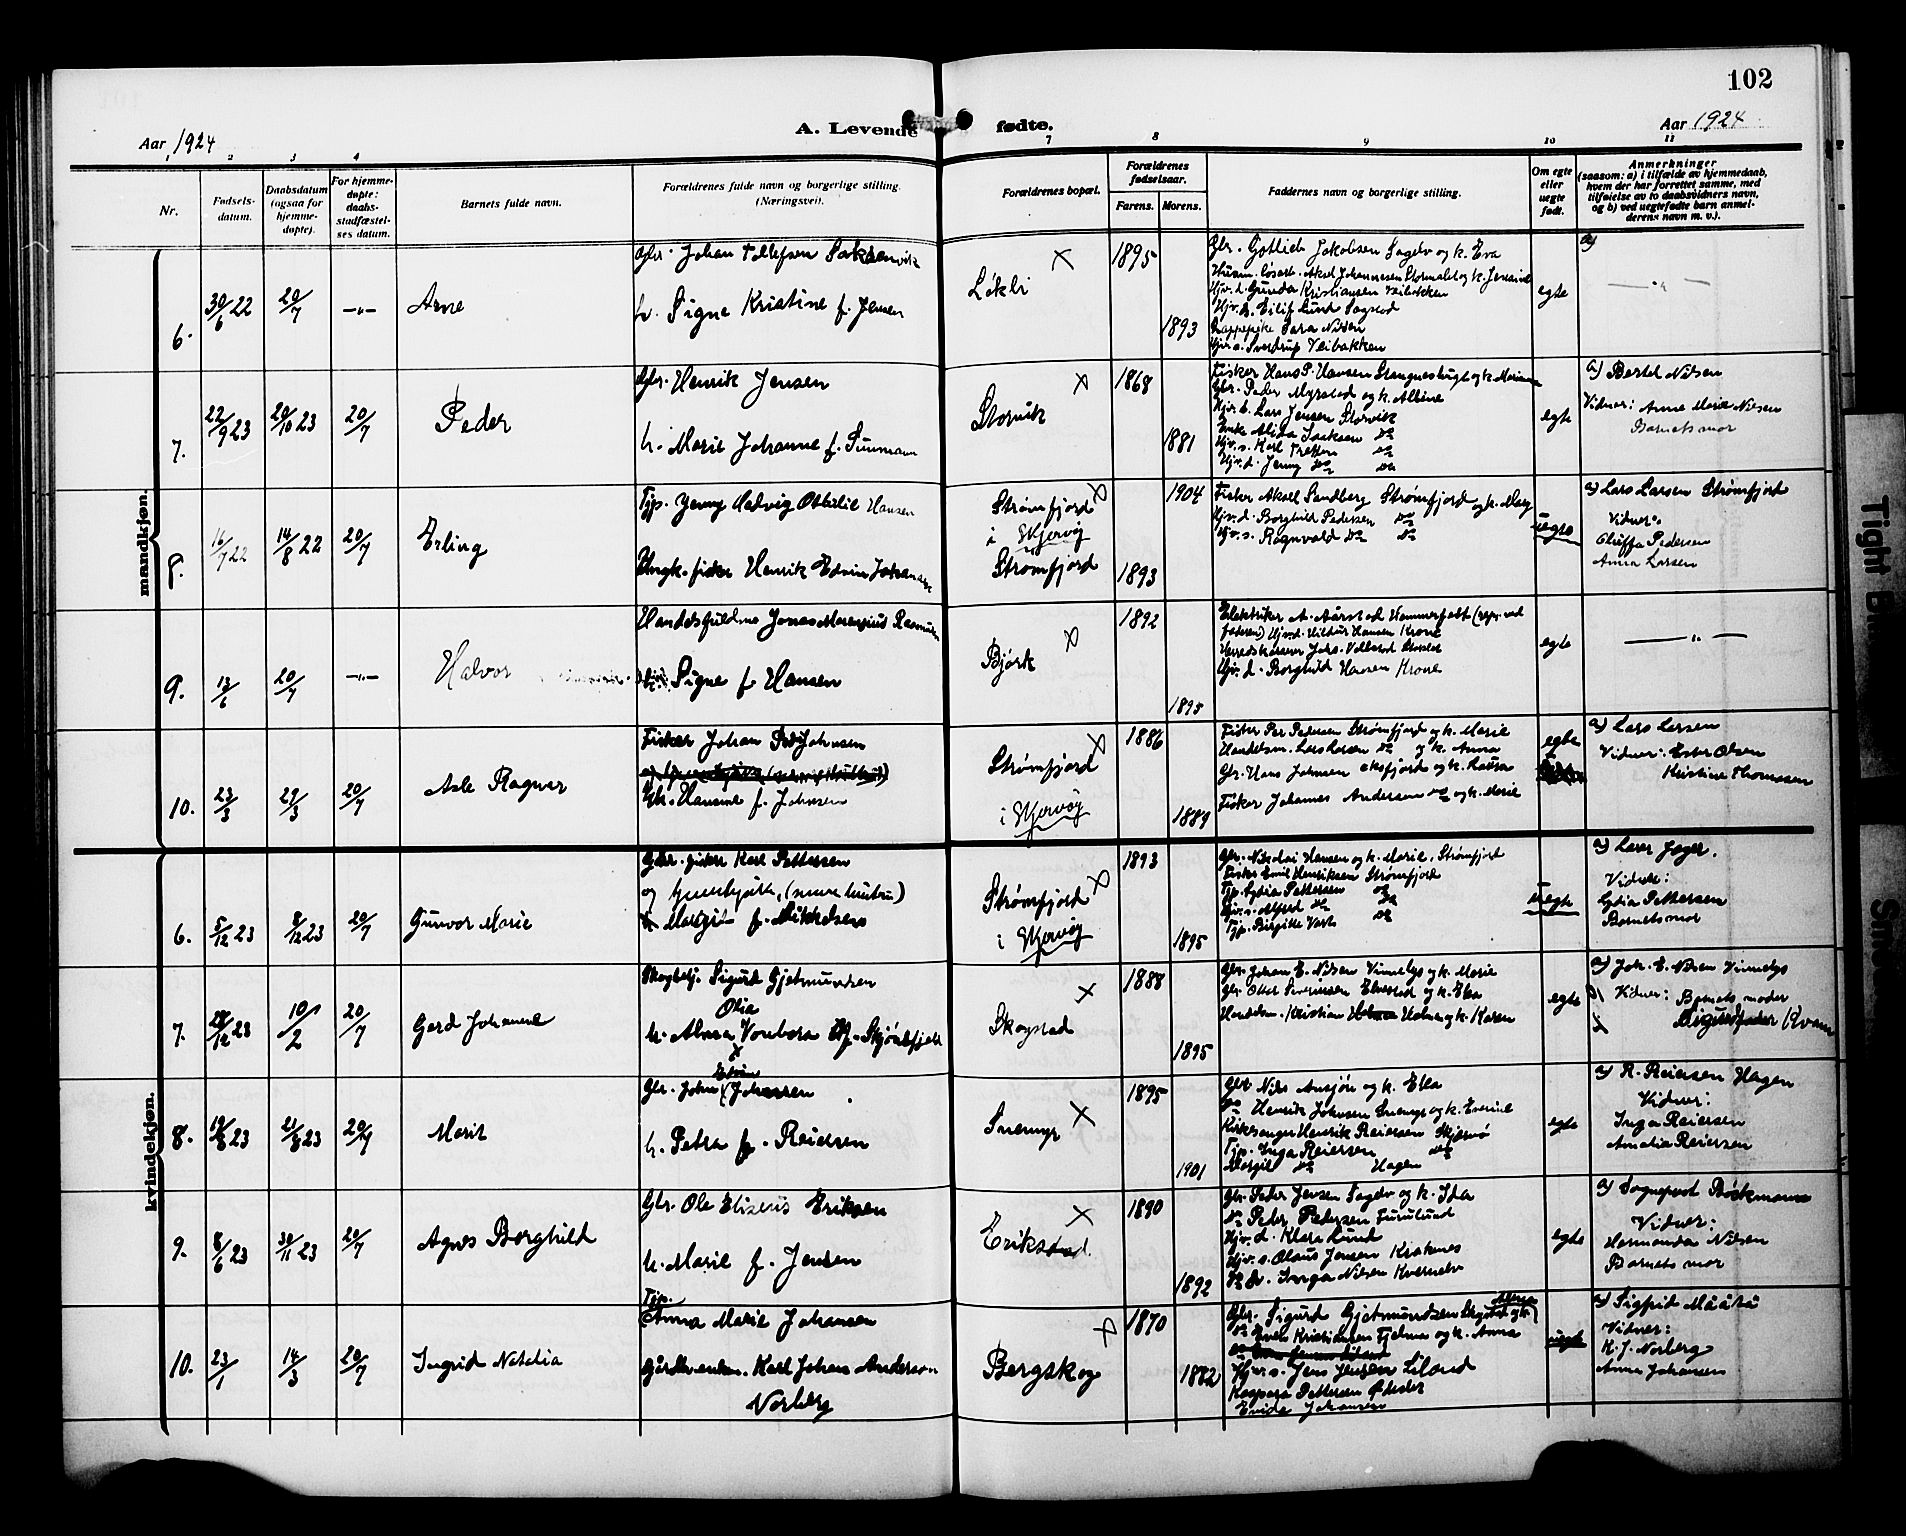 102
A. Levende fødte.
Aar 1924
Aar 1924
1 2 3 4 7 8 9 10 11
Nr.
Fødsels-
datum.
Daabsdatum
(ogsaa for
hjemme-
døpte).
For hjemme-
døpte:
daabs-
stadfæstel-
ses datum.
Barnets fulde navn.
Forældrenes fulde navn og borgerlige stilling.
(Næringsvei).
Forældrenes bopæl.
Forældrenes
fødselsaar.
Farens. Morens.
Faddernes navn og borgerlige stilling.
Om egte
eller
uegte
født.
Anmerkninger
(saasom: a) i tilfælde av hjemmedaab,
hvem der har forrettet samme, med
tilføielse av to daabsvidners navn,
og b) ved uegtefødte barn anmel-
derens navn m. v.).
mandkjøn.
6. 30/6 22 20/7 —"— Arne
Gbr. Johan Tollefsen
h. Signe Kristine f. Jensen
Løkli
1895
1893
Gbr. Gotlieb Jakobsen Sagelv og k. Eva
Hjv. d. Gunda Kristiansen Veibakken
Hjv. s. Eilif Lund Sagstad
Sara Nilsen
Hjv. s. Sverdrup Veibakken
egte
a)
—"—
7. 22/9 23 20/10 23 20/7 Peder
Gbr. Henrik Jensen
h. Marie Johanne f.
Storvik
1868
1881
Fisker Hans P. Hansen
Gbr. Peder Myrstad og k. Albine
Hjv. s. Lars Jensen Storvik
Enke Alida Isaksen do
Hjv. s. Karl do
Hjv. d. Jenny do do
egte
a) Bertel Nilsen
Vidner: Anne Marie Nilsen
Barnets mor
8. 16/7 22 14/8 22 20/7 Erling
Tjp. Jenny Hedvig Othilie Hansen
Ungk. fisker Henrik Edvin Johansen
Strømfjord
i Skjervøy
Strømfjord
1904
1893
Fisker Aksel Sandberg Strømfjord og k. Mary
Hjv. d. Borghild Pedersen do
Hjv. s. Ragnvald do do
uegte
a) Lars Larsen Strømfjord
Vidner:
Oluffa Pedersen
Anna Larsen
9. 13/6 20/7 —"— Halvor
Jonas Marensius Rasmussen
Signe f. Hansen
Bjørk
1892
1895
Elektriker A. Aarstad Hammerfest (repr. ved
faderen) Hjv. d. Hildur Hansen Krone
Hjv. d. Borghild Hansen Krone
egte
—"—
10. 23/3 29/3 20/7 Asle Ragnar
Fisker Johan Johnsen
h. Hansine f. Johnsen
Strømfjord
i Skjervøy
1886
1889
Fisker Per Pedersen Strømfjord og k. Marie
Handelsm. Lars Larsen do og k. Anna
Gbr. Hans Johnsen og k.
Fisker Johannes Andersen do og k. Marie
egte
a) Lars Larsen
Vidner: Ester Olsen
Kristine Thomassen
kvindekjøn.
6. 5/12 23 8/12 23 20/7 Gunvor Marie
Gbr. fisker Karl Pettersen
og
Margit f. Mikkelsen
Strømfjord
i Skjervøy
1893
1895
Gbr. Nikolai Hansen og k. Marie, Strømfjord
Fisker Emil Henriksen Strømfjord
Tjp. Lydia Pettersen do
Hjv. s. Alfred do do
Tjp. Birgitte do
uegte
a) Laver Jæger.
Vidner:
Lydia Pettersen
Barnets mor
7. 28/12 23 10/2 20/7 Gerd Johanne
Skogbetj. Sigurd Gjetmundsen
Olia
h. Alvara
Skogstad
1888
1895
Gbr. Johan E. Nilsen Vinnelys og k. Marie
Gbr. Oluf Sivertsen Elvestad og k. Eka
Handelsm. Kristian Holm og k. Karen
egte
a) Joh. E. Nilsen Vinnelys
Vidner: Barnets moder
Kvam
8. 19/8 23 21/8 23 20/7 Marit
Edvin
Gbr. John Johansen
h. Petra f. Reiersen
Snemyr
1895
1901
Gbr. Nils og k. Eka
do Henrik Johnsen Snemyr og k. Everine
Kirkesanger Henrik Reiersen Skjervø
Tjp. Inga Reiersen do
Margit do Hagen
egte
a) R. Reiersen Hagen
Vidner:
Inga Reiersen
Amalia Reiersen
9. 8/6 23 30/11 23 20/7 Agnes Borghild
Gbr. Ole Eliseus Eriksen
h. Marie f. Jensen
Erikstad.
1890
1892
Gbr. Peder Jensen Sagelv og k. Ida
do Peder Pedersen Furulund
Hjv. d. Klara Lund
Hjv. s. Olaus Jensen Kraknes
Inga Nilsen Kvernelv
egte
a) Sogneprest Bøckmann
Vidner:
Hermanda Nilsen
Barnets mor
10. 23/1 14/3 20/7 Ingrid Natalia
Tjp.
Anna Marie Johansen
Karl Johan Anderson
Norberg
Bergskog
1870
1882
Gbr. Sigurd Gjetmundsen
do Kristiansen og k. Anna
Hjv. s. Jens Jensen Liland
Kaspara Pettersen
Johansen
uegte
a) Sigfrid
Vidner:
K. J. Norberg
Anna Johansen
Tight Bi